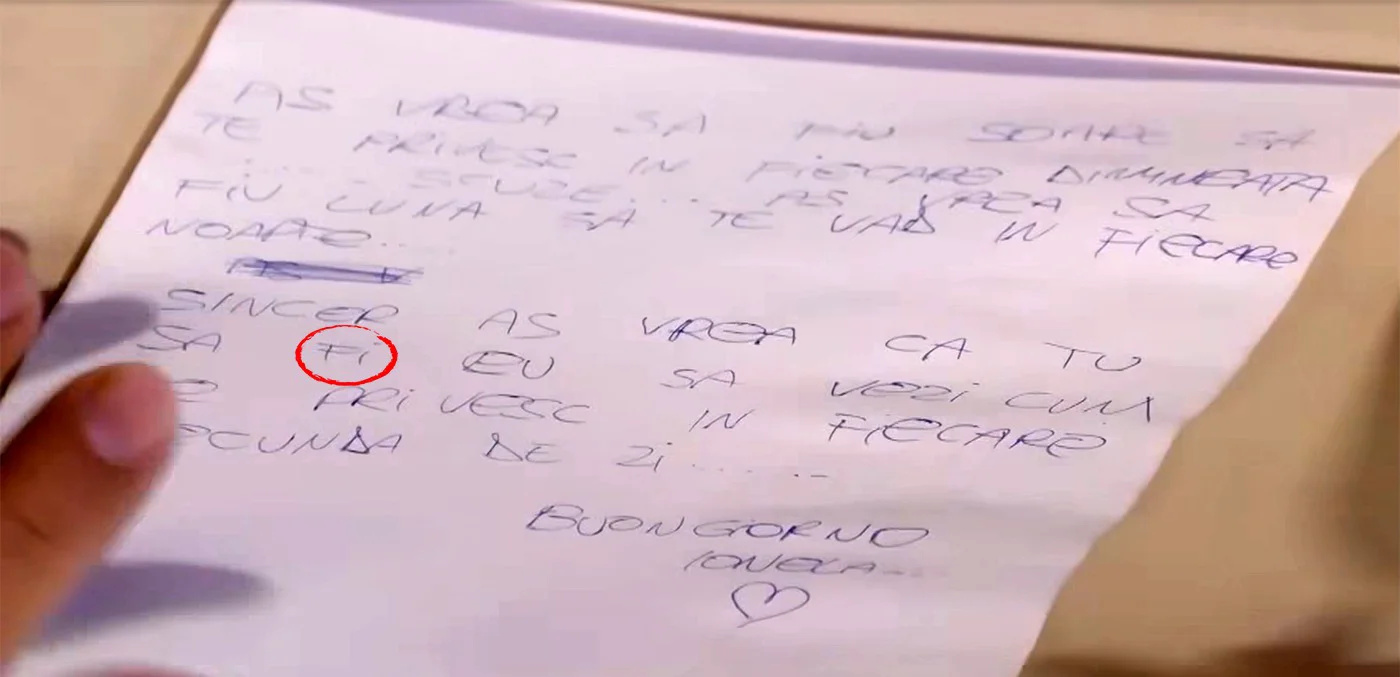 AS VREA SA FIU SOARE SA
TE PRIVESC IN FIECARE DIMINEATA
.... SCUZE... AS VREA SA
FIU LUNA SA TE VAD IN FIECARE
NOAPTE...
SINCER AS VREA CA TU
SA Fi EU SA VEZi CUM
PRiVESC IN FiECARE
DE Zi .......
BUONGiORNO
IONELA...